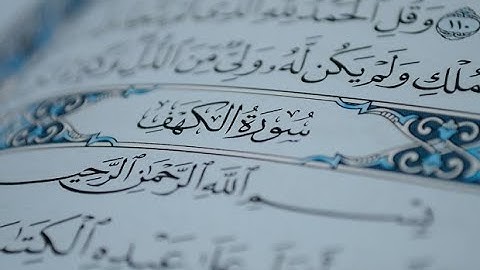 وَقُلِ ٱلْحَمْدُ لِلَّهِ ٱلَّذِى ١١٠
ٱلْمُلْكِ وَلَمْ يَكُن لَّهُۥ وَلِىٌّ مِّنَ ٱلذُّلِّ وَكَبِّرْهُ
سُورَةُ الْكَهْفِ
بِسْمِ ٱللَّهِ ٱلرَّحْمَٰنِ ٱلرَّحِيمِ
عَلَىٰ عَبْدِهِ ٱلْكِتَٰبَ